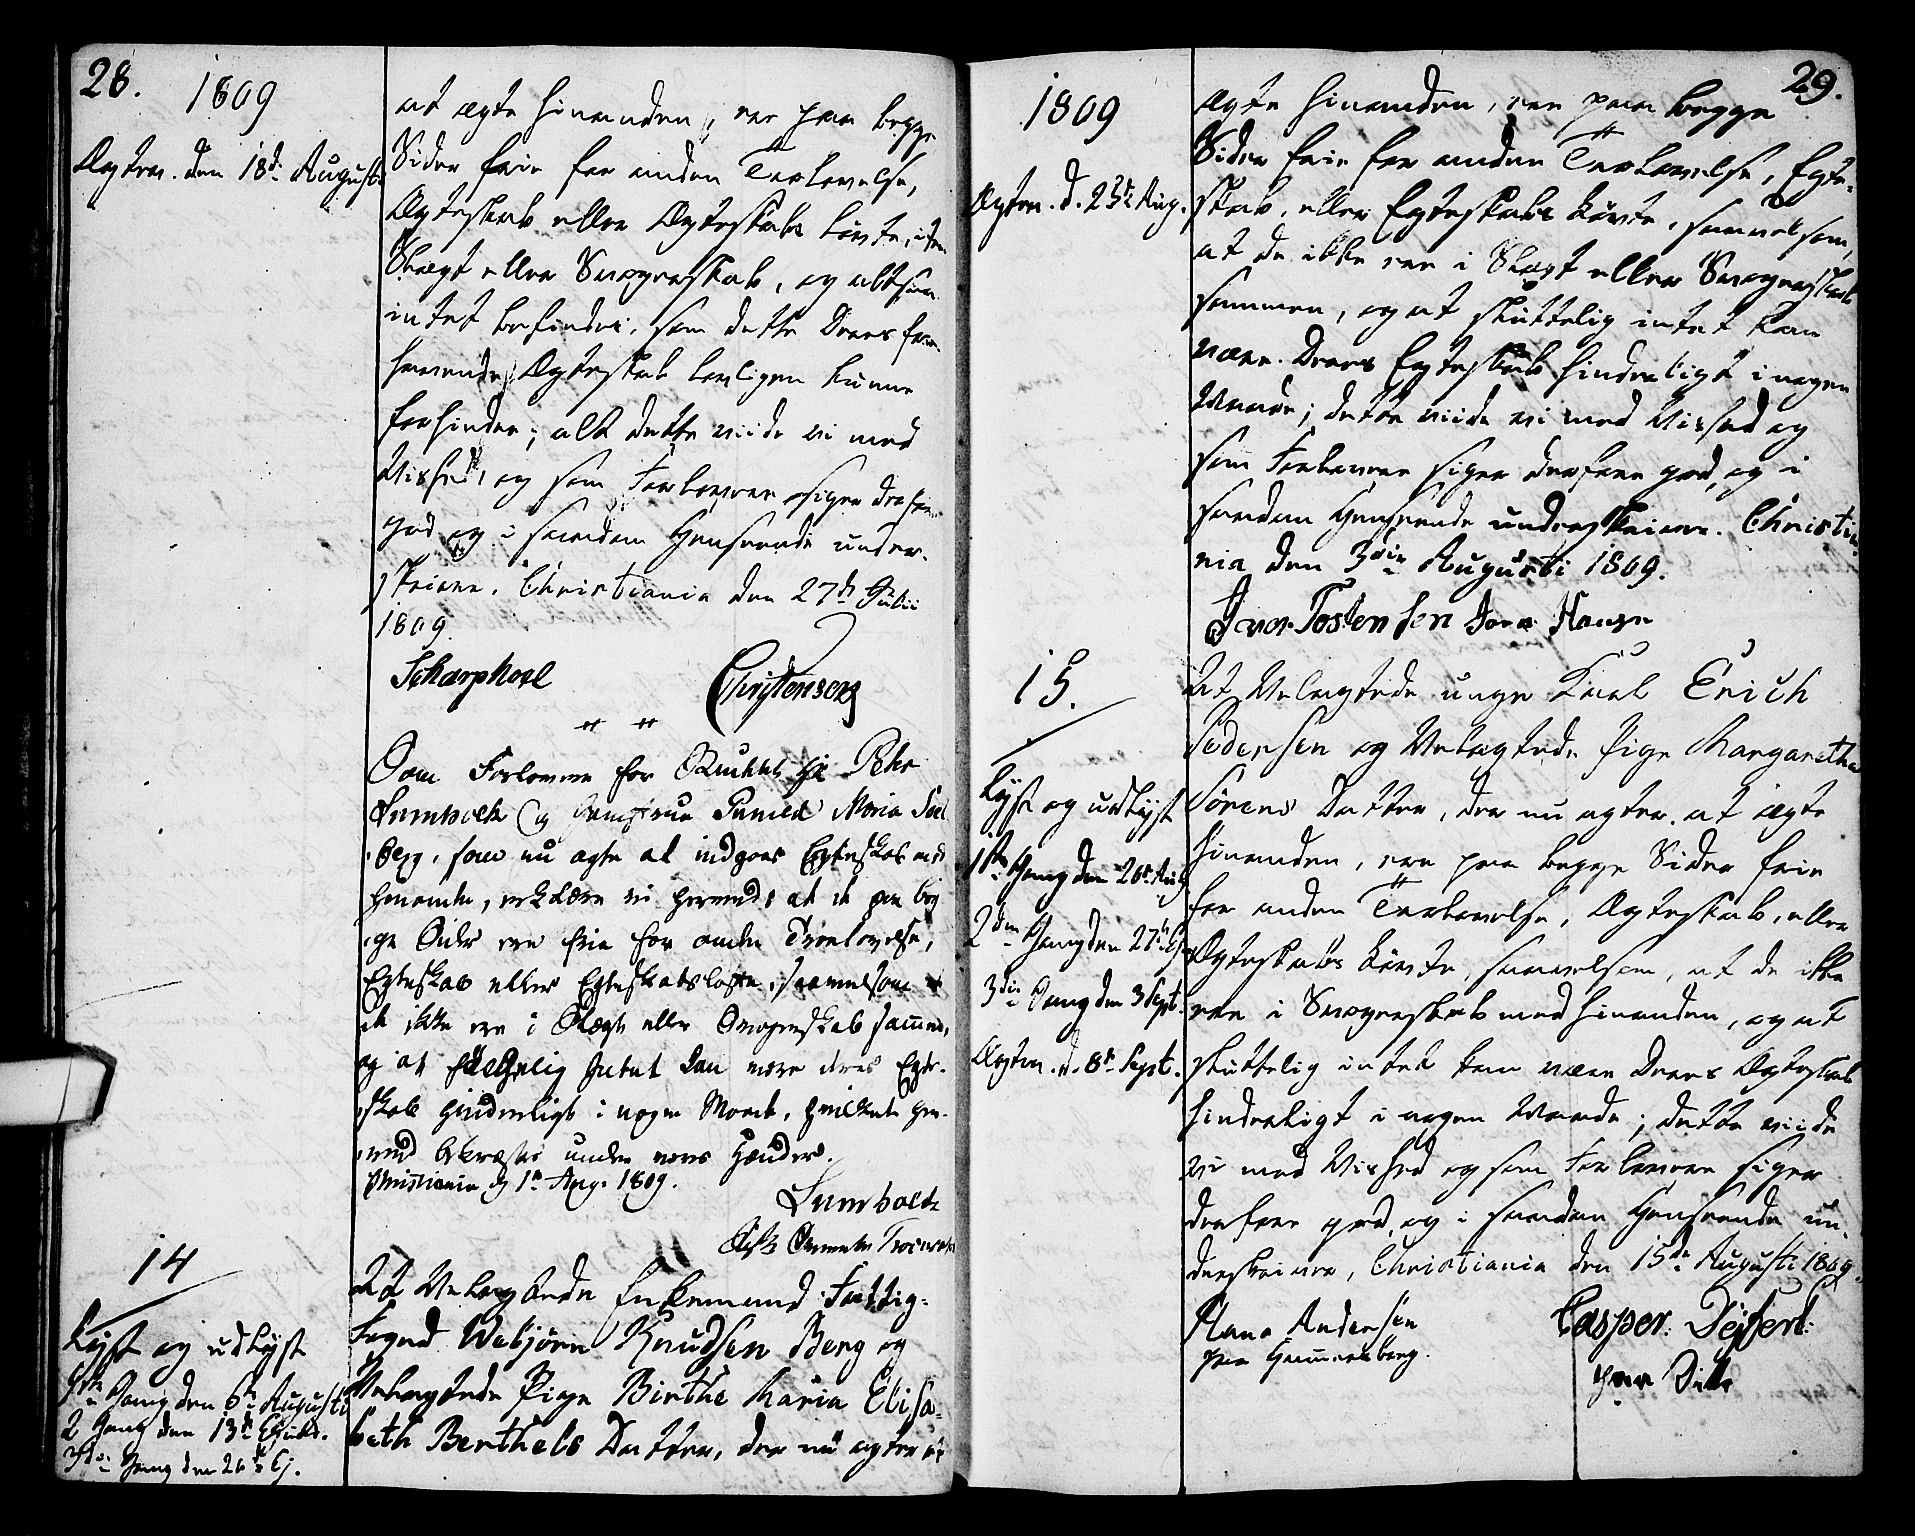 28.
1809
Ægtev. den 18de Augusti
at ægte hinanden, ere paa begge
Sider frie for anden Trolovelse,
Ægteskab eller Ægteskabs Løvte, uden
Slægt eller Svogerskab, og altsaa
intet befindes, som dette Deres fore
havende Ægteskab lovligen kunne
forhindre; alt dette viide vi med
Vished, og som Forlovere siger derfore
god og i saadan Henseende under-
skriver. Christiania den 27de Julii
1809.
Scharphoel Christensen
Som Forlovere for Peter
Lumholtz og Jomfrue Maria
berg, som nu agte at indgaae Egteskab med
hinanden, erklære vi herved, at de paa beg
ge Sider ere frie for anden Troelovelse,
Egteskab eller Egteskabsløfte, saavelsom at
de ikke ere i Slægt eller Svogerskab sammen,
og at skiellig Intet kan være deres Egte-
skab hinderligt i nogen Maade, hvilket her-
ved bekræftes under vores Hænder.
Christiania d. 1te Aug. 1809.
Lumholtz
14
Lyst og udlyst
1ste Gang den 6te Augusti
2 Gang den 13de Ejusd.
3die Gang den 20de Ej.
At Velagtede Enkemand Fattig-
Foged Webjörn Knudsen Berg og
Velagtede Pige Birthe Maria Elisa-
beth Berthels Datter, der nu agter at
29.
1809
Ægtev. d. 23de Aug.
ægte hinanden, ere paa begge
Sider frie for anden Trolovelse, Egte-
skab, eller Egteskabs Løvte, saavelsom,
at de ikke ere i Slægt eller Svogerskab
sammen, og at skiellig intet kan
være Deres Egteskab hinderligt i nogen
Maade; dette viide vi med Vished og
som Forlovere siger derfore god, og i
saadan Henseende underskriver. Christia-
nia den 3die Augusti 1809.
Iver Tostensen Hansen
15.
Lyst og udlyst
1ste Gang den 20de Aug
2den Gang den 27de Ej.
3die Gang den 3 Sept.
Ægtev. d. 8de Sept.
At Velagtede unge Karl Erich
Pedersen og Velagtede Pige Margaretha
Sörens Datter, der nu agter at ægte
hinanden, ere paa begge Sider frie
for anden Trolovelse, Ægteskab, eller
Ægteskabs Løvte, saavelsom, at de ikke
ere i Svogerskab med hinanden, og at
skiellig intet kan være Deres Ægteskab
hinderligt i nogen Maade; dette viide
vi med Vished og som Forlovere siger
derfore god, og i saadan Henseende un-
derskriver, Christiania den 15de Augusti 1809.
Hans Andersen Casper
paa Hammersborg. paa Ditto